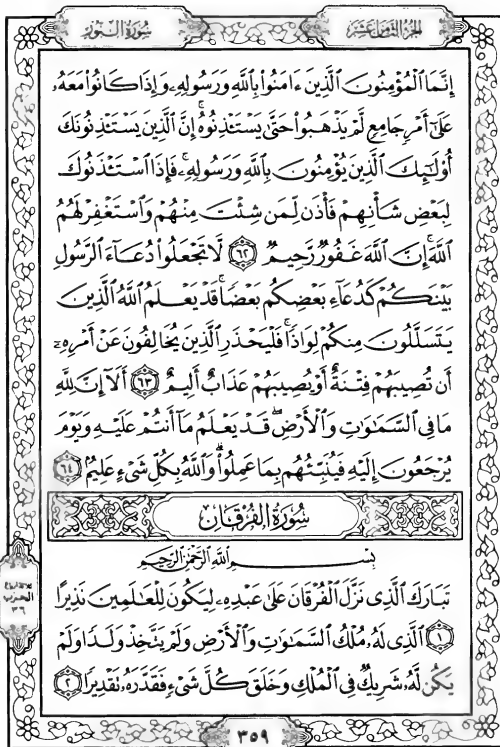 الجزء الثامن عشر
سورة النور
إِنَّمَا ٱلْمُؤْمِنُونَ ٱلَّذِينَ ءَامَنُوا۟ بِٱللَّهِ وَرَسُولِهِۦ وَإِذَا كَانُوا۟ مَعَهُۥ
عَلَىٰٓ أَمْرٍ جَامِعٍ لَّمْ يَذْهَبُوا۟ حَتَّىٰ يَسْتَـْٔذِنُوهُ ۚ إِنَّ ٱلَّذِينَ يَسْتَـْٔذِنُونَكَ
أُو۟لَـٰٓئِكَ ٱلَّذِينَ يُؤْمِنُونَ بِٱللَّهِ وَرَسُولِهِۦ ۚ فَإِذَا ٱسْتَـْٔذَنُوكَ
لِبَعْضِ شَأْنِهِمْ فَأْذَن لِّمَن شِئْتَ مِنْهُمْ وَٱسْتَغْفِرْ لَهُمُ
ٱللَّهَ ۚ إِنَّ ٱللَّهَ غَفُورٌ رَّحِيمٌ ٦٢ لَّا تَجْعَلُوا۟ دُعَآءَ ٱلرَّسُولِ
بَيْنَكُمْ كَدُعَآءِ بَعْضِكُم بَعْضًا ۚ قَدْ يَعْلَمُ ٱللَّهُ ٱلَّذِينَ
يَتَسَلَّلُونَ مِنكُمْ لِوَاذًا ۚ فَلْيَحْذَرِ ٱلَّذِينَ يُخَالِفُونَ عَنْ أَمْرِهِۦٓ
أَن تُصِيبَهُمْ فِتْنَةٌ أَوْ يُصِيبَهُمْ عَذَابٌ أَلِيمٌ ٦٣ أَلَآ إِنَّ لِلَّهِ
مَا فِى ٱلسَّمَـٰوَٰتِ وَٱلْأَرْضِ ۖ قَدْ يَعْلَمُ مَآ أَنتُمْ عَلَيْهِ وَيَوْمَ
يُرْجَعُونَ إِلَيْهِ فَيُنَبِّئُهُم بِمَا عَمِلُوا۟ ۗ وَٱللَّهُ بِكُلِّ شَىْءٍ عَلِيمٌۢ ٦٤
سُورَةُ الْفُرْقَان
بِسْمِ ٱللَّهِ ٱلرَّحْمَـٰنِ ٱلرَّحِيمِ
تَبَارَكَ ٱلَّذِى نَزَّلَ ٱلْفُرْقَانَ عَلَىٰ عَبْدِهِۦ لِيَكُونَ لِلْعَـٰلَمِينَ نَذِيرًا
١ ٱلَّذِى لَهُۥ مُلْكُ ٱلسَّمَـٰوَٰتِ وَٱلْأَرْضِ وَلَمْ يَتَّخِذْ وَلَدًا وَلَمْ
يَكُن لَّهُۥ شَرِيكٌ فِى ٱلْمُلْكِ وَخَلَقَ كُلَّ شَىْءٍ فَقَدَّرَهُۥ تَقْدِيرًا ٢
الحزب
٣٦
٣٥٩